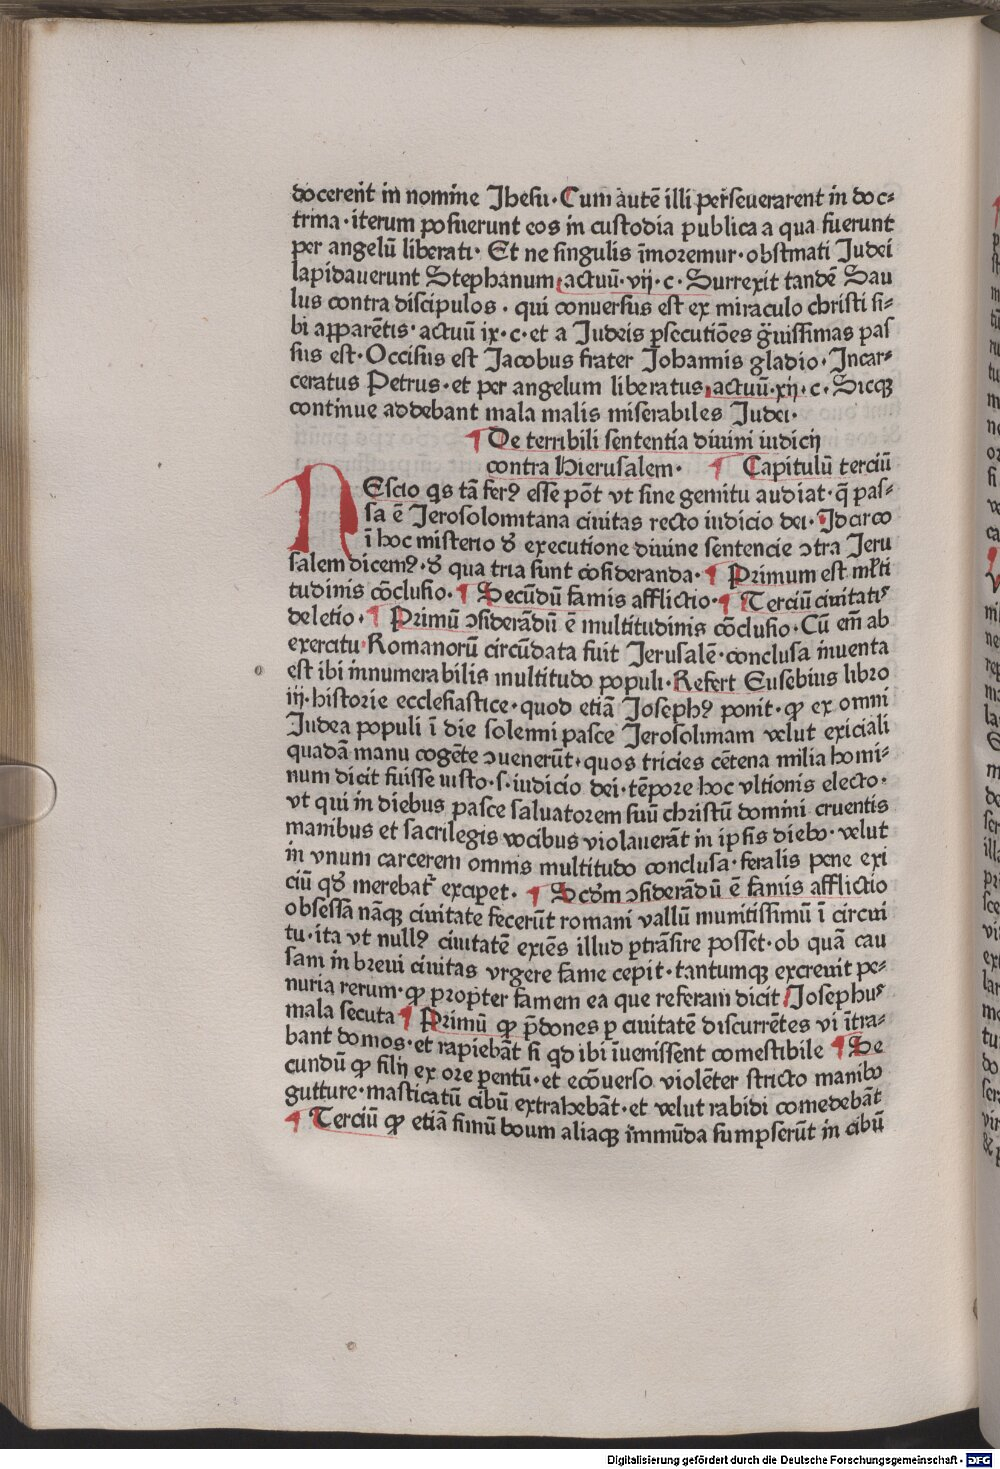 docerent in nomine Jhesu· Cum autē illi perseuerarent in doc⸗
trina· iterum posuerunt eos in custodia publica a qua fuerunt
per angelū liberati· Et ne singulis īmoremur· obstinati Judei
lapidauerunt Stephanum actuū· vij· c· Surrexit tandē Sau
lus contra discipulos · qui conuersus est ex miraculo christi si⸗
bi apparētis· actuū ix· c· et a Judeis ꝑsecutiōes grauissimas pas
sus est· Occisus est Jacobus frater Johannis gladio· Jncar⸗
ceratus Petrus· et per angelum liberatus actuū· xij· c· Sicqꝫ
continue addebant mala malis miserabiles Judei·
¶ De terribili sententia diuini iudicij
contra Hierusalem· ¶ Capitulū terciū
NEscio qͥs tā ferꝰ esse pōt vt sine gemitu audiat· q̄ pas⸗
sa ē Jerosolomitana ciuitas recto iudicio dei· Jdcirco
ī hoc misterio dꝫ executione diuine sentencie ꝯtra Jeru
salem dicemꝰ· dꝫ qua tria sunt cōsideranda· ¶ Primum est ml̄ti
tudinis cōclusio· ¶ Secūdū famis afflictio· ¶ Terciū ciuitatis
deletio· ¶ Primū ꝯsiderādū ē multitudinis cōclusio· Cū em̄ ab
exercitu Romanorū circūdata fuit Jerusalē· conclusa inuenta
est ibi innumerabilis multitudo populi· Refert Eusebius libro
iij· historie ecclesiastice· quod etiā Josephꝰ ponit· ꝙ ex omni
Judea populi ī die solenni pasce Jerosolimam velut exiciali
quadā manu cogēte ꝯuenerūt· quos tricies cētena milia homi⸗
num dicit fuisse iusto· s· iudicio dei· tēpore hoc vltionis electo·
vt qui in diebus pasce saluatorem suū christū domini cruentis
manibus et sacrilegis vocibus violauerāt in ipsis diebꝰ· velut
in vnum carcerem omnis multitudo conclusa· feralis pene exi
ciū qd̓ merebat᷑ exciperet· ¶ Scdm ꝯsiderādū ē famis afflictio
obsessa nāqꝫ ciuitate fecerūt romani vallū munitissimū ī circui
tu· ita vt nullꝰ ciuitatē exiēs illud ꝑtrāsire posset· ob quā cau
sam in breui ciuitas vrgere fame cepit· tantumqꝫ excreuit pe⸗
nuria rerum· ꝙ propter famem ea que referam dicit Josephus
mala secuta ¶ Primū ꝙ p̄dones ꝑ ciuitatē discurrētes vi ītra⸗
bant domos· et rapiebāt si qd ibi īuenissent comestibile ¶ Se
cundū ꝙ filij ex ore parentū· et ecōuerso violēter stricto manibꝰ
gutture· masticatū cibū extrahebāt· et velut rabidi comedebāt
¶ Terciū ꝙ etiā fimū boum aliaqꝫ immūda sumpserūt in cibū
Digitalisierung gefördert durch die Deutsche Forschungsgemeinschaft - DFG